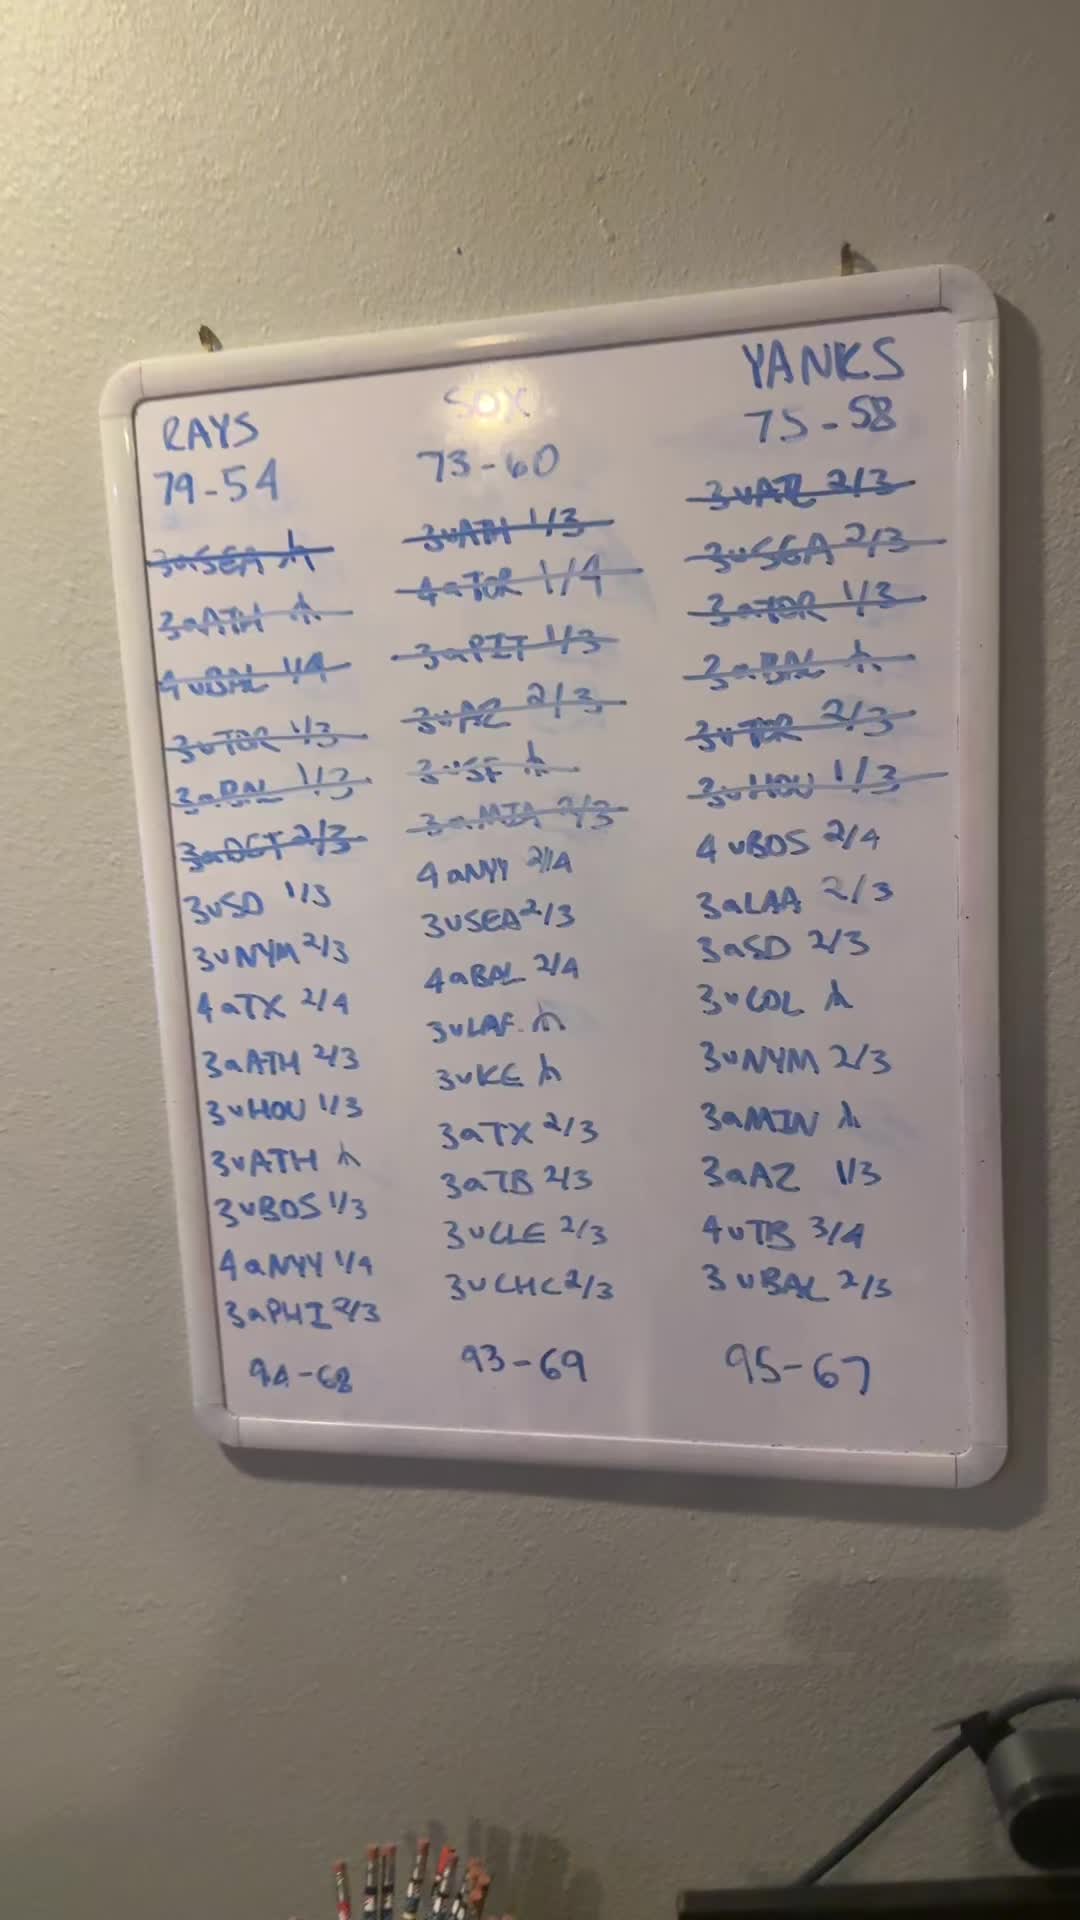 RAYS
79-54
3aSEA
3aATH
4vBAL 1/4
3vTOR 1/3
3aBAL 1/3
3aDET 2/3
3vSD 1/3
3vNYM 2/3
4aTX 2/4
3aATH 2/3
3vHOU 1/3
3vATH
3vBOS 1/3
4aNYY 1/4
3aPHI 2/3
94-68
SOX
73-60
3vATH 1/3
4aTOR 1/4
3aPIT 1/3
3vAZ 2/3
3vSF
3aMIA 2/3
4aNYY 2/4
3vSEA 2/3
4aBAL 2/4
3vLAA
3vKC
3aTX 2/3
3aTB 2/3
3vCLE 2/3
3vCHC 2/3
93-69
YANKS
75-58
3vATL 2/3
3vSEA 2/3
3aTOR 1/3
3aBAL
3vTOR 2/3
3vHOU 1/3
4vBOS 2/4
3aLAA 2/3
3aSD 2/3
3vCOL
3vNYM 2/3
3aMIN
3aAZ 1/3
4vTB 3/4
3vBAL 2/3
95-67